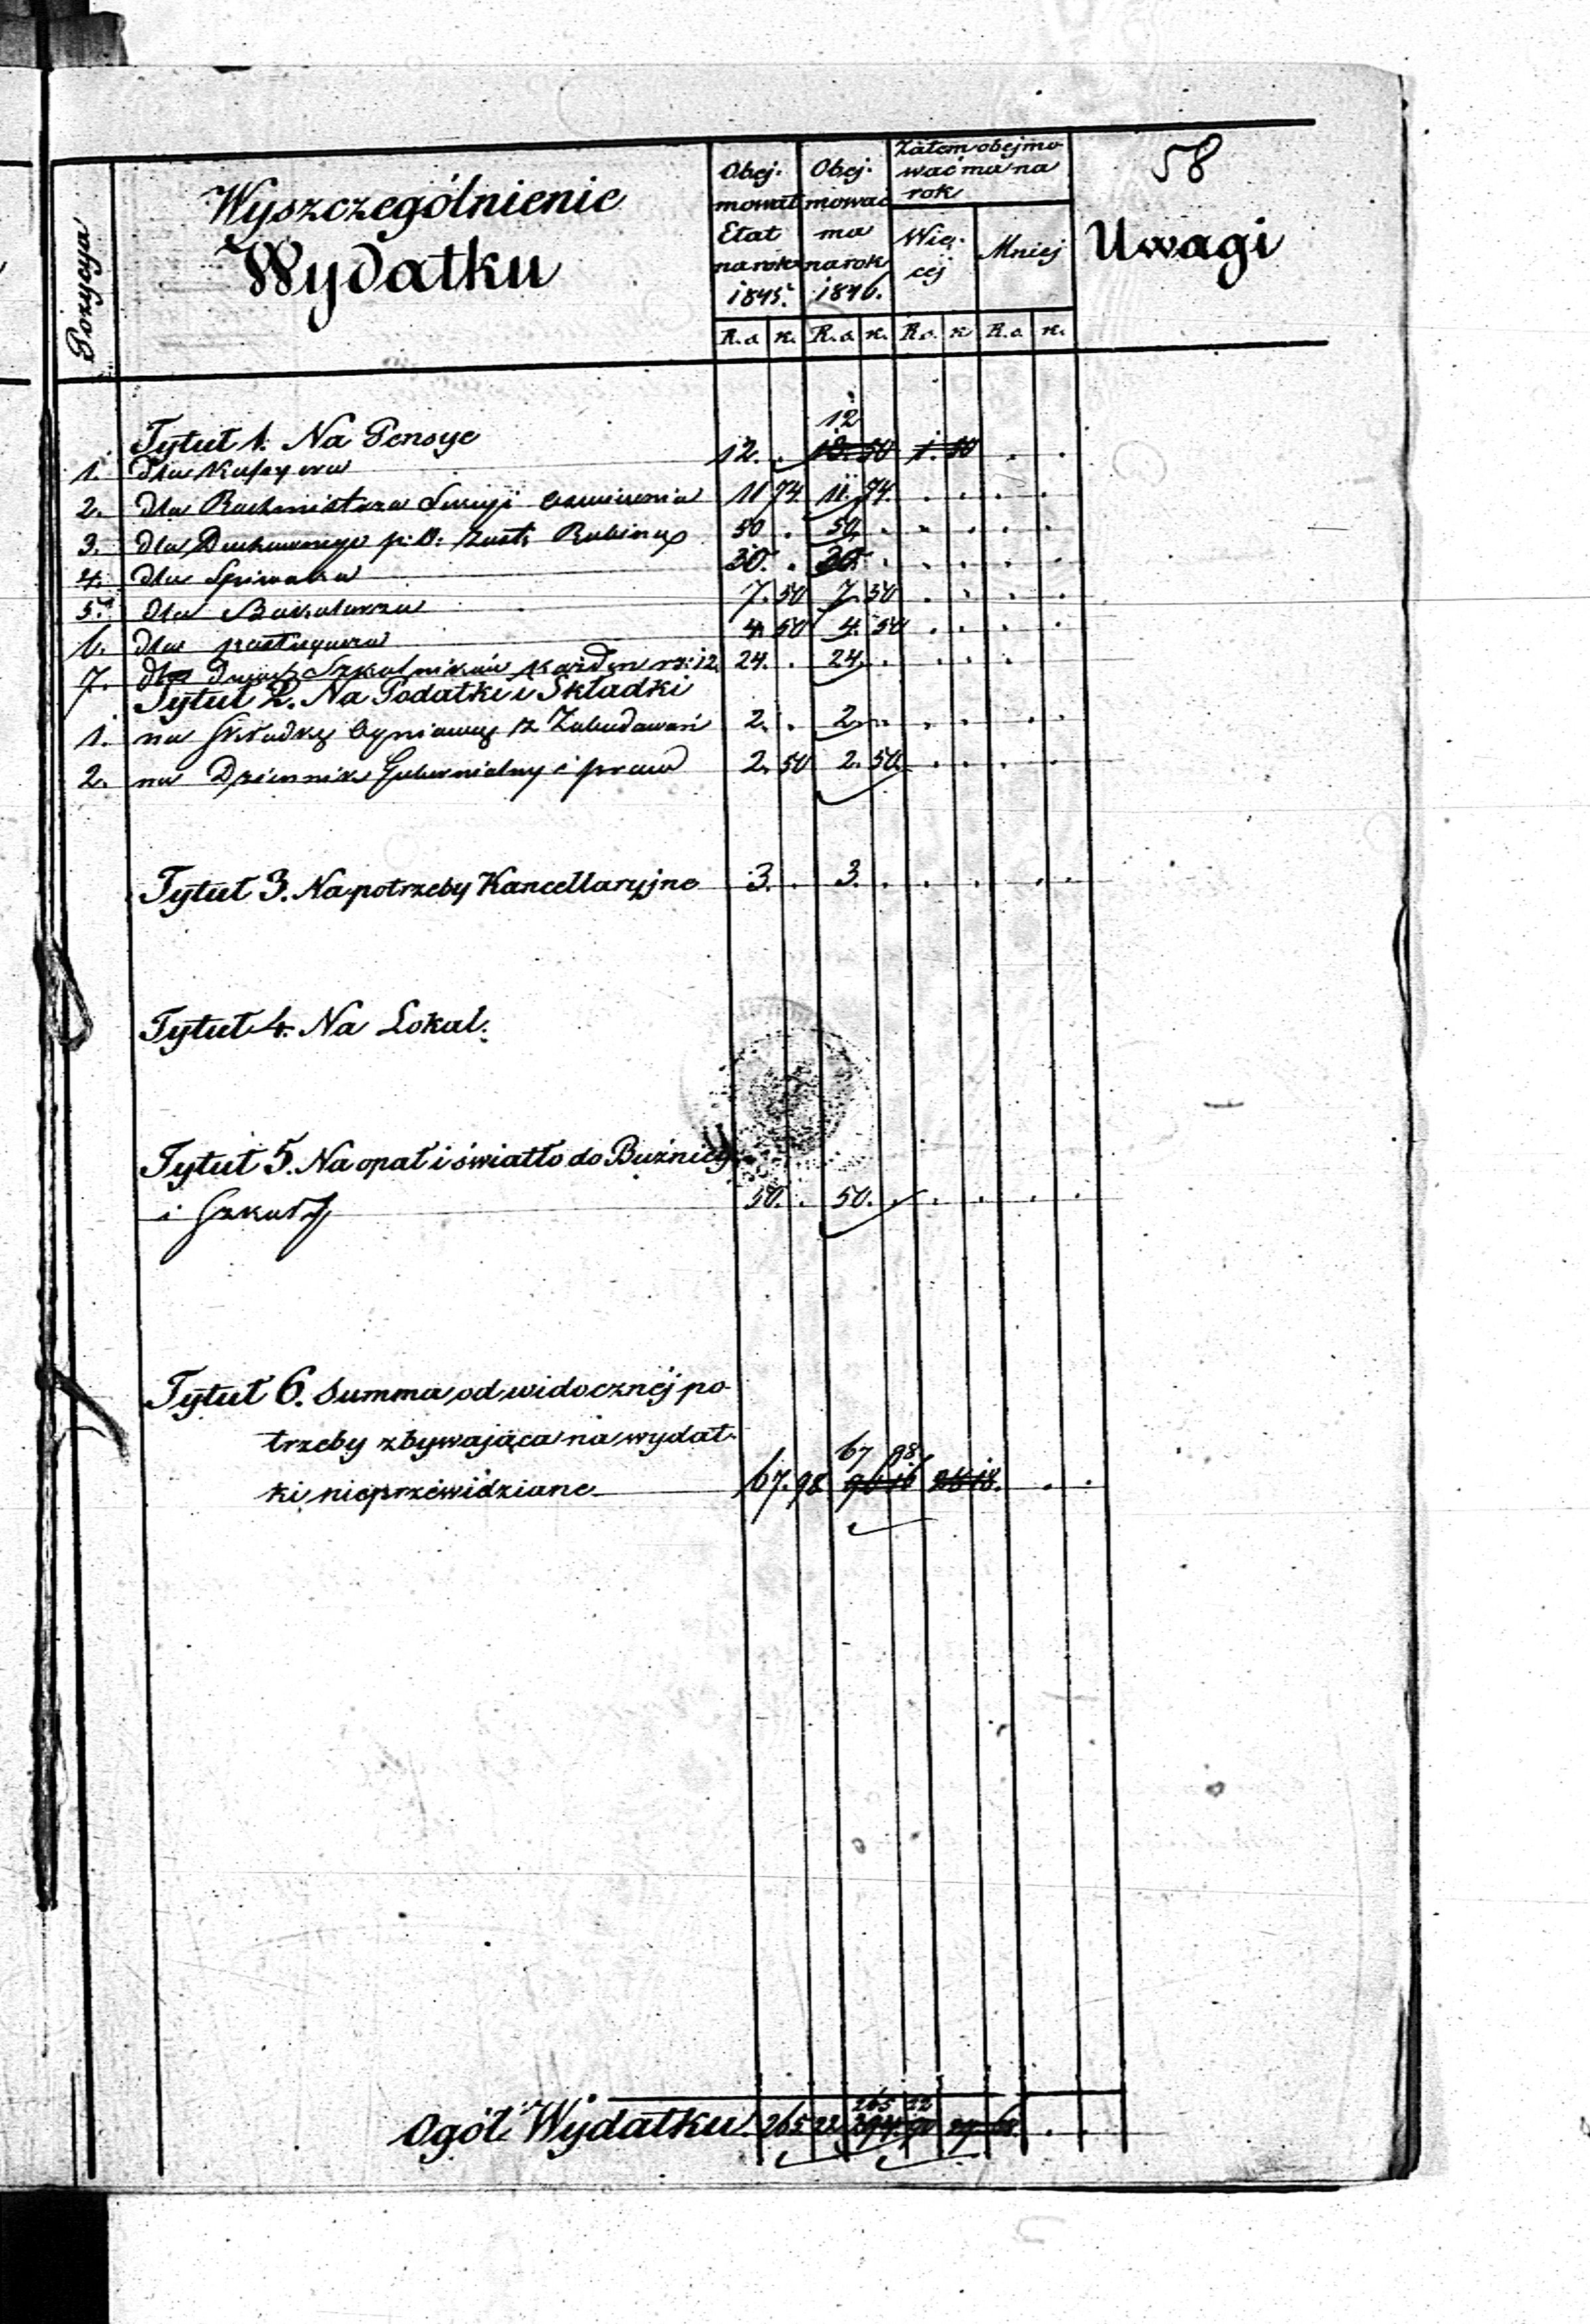 58
Pozycya
Wyszczególnienie
Wydatku
Obej-
mował
Etat
na rok
1845.
Obej-
mować
ma
na rok
1846.
Zatem obejmo-
wać ma na
rok
Wię-
cej
Mniej
Uwagi
R.s. k. R.s. k. R.s. k. R.s. k.
Tytuł 1. Na Pensye
12
1. dla Kassyera 12. . 13. 50 1. 50 . .
2. dla Rachmistrza 11 74. 11. 74. . . . .
3. dla Duchownego p. O. Zast. Rabina 50 . 50. . . . . .
4. dla Spiewaka 30. . 30. . . . . .
5. dla Bakałarza 7. 50 7. 50 . . . .
6. dla 4. 50 4. 50 . . . .
7. dla Dwóch Szkolników każden rs. 12. 24. . 24. . . . .
Tytuł 2. Na Podatki i Składki
1. na Składkę Ogniową z Zabudowań 2. . 2. . . . . .
2. na Dziennik Gubernialny i praw 2. 50 2. 50. . . . .
Tytuł 3. Na potrzeby Kancellaryjne 3. . 3. . . . . .
Tytuł 4. Na Lokal.
Tytuł 5. Na opał i światło do Bużnicy
i Szkoły 50. . 50. . . . . .
Tytuł 6. Summa od widocznéj po-
trzeby zbywająca na wydat-
67 98.
ki nieprzewidziane 67. 98. 96 16 28 18. . .
265 22
Ogół Wydatku. 265 22 294 90 29 68. . .